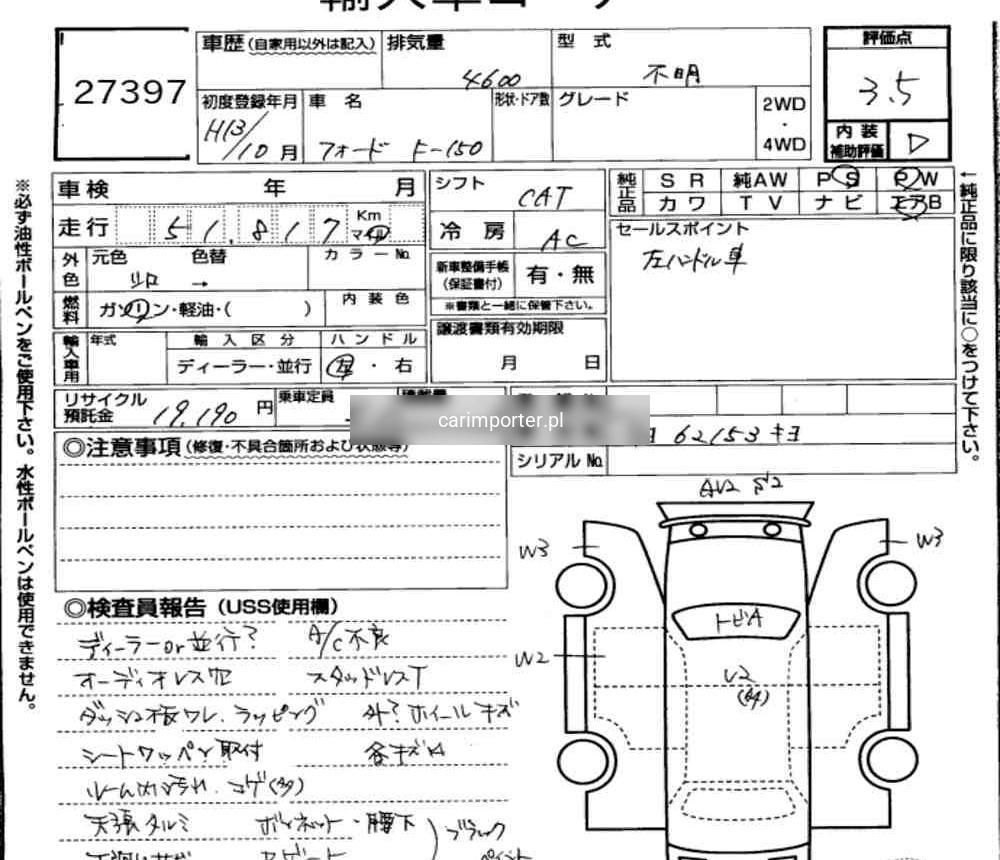 27397
車歴(自家用以外は記入) 排気量 型式 評価点
4600 不明 3.5
初度登録年月 車名 形状・ドア数 グレード 2WD・4WD
H13/10月 フォード F-150
内装補助評価 D
車検 年 月 シフト CAT
純正品 SR 純AW PS PW
カワ TV ナビ エアB
走行 51,817 Km マイル
冷房 AC
セールスポイント
左ハンドル車
外色 元色 色替 カラーNo.
→
新車整備手帳(保証書付) 有・無
※書類と一緒に保管下さい。
燃料 ガソリン・軽油・( ) 内装色
譲渡書類有効期限
月 日
輸入車用 年式 輸入区分 ハンドル
ディーラー・並行 左・右
リサイクル預託金 19,190円 乗車定員
carimporter.pl
62153キヨ
シリアルNo.
◎注意事項(修復・不具合箇所および状態等)
◎検査員報告(USS使用欄)
ディーラーor並行? A/C不良
オーディオレス穴 スタッドレスT
ダッシュ板ワレ.ラッピング 外?ホイールキズ
シートワッペン取付 各キズ凹
ルーム内汚れ.コゲ(多)
天張タルミ ボンネット・腰下
ブラック
ペイント
AU2 S2
W3
W3
トビA
W2
U2
(多)
※必ず油性ボールペンをご使用下さい。水性ボールペンは使用できません。
←純正品に限り該当に○をつけて下さい。